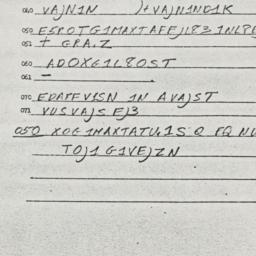 040 VAJN1N )+VAJN1ND1K
050 ESPOTG1MAXTAFFJ1831NLPL
051 + GRA.Z
060 ADOXG1L8OST
061 —
070 EDAFFVISN 1N AVAJST
071 VUSVAJS FJ3
050 XOG1MAXTATU1S Q FQ NU
TOJ1 G1VEJZN